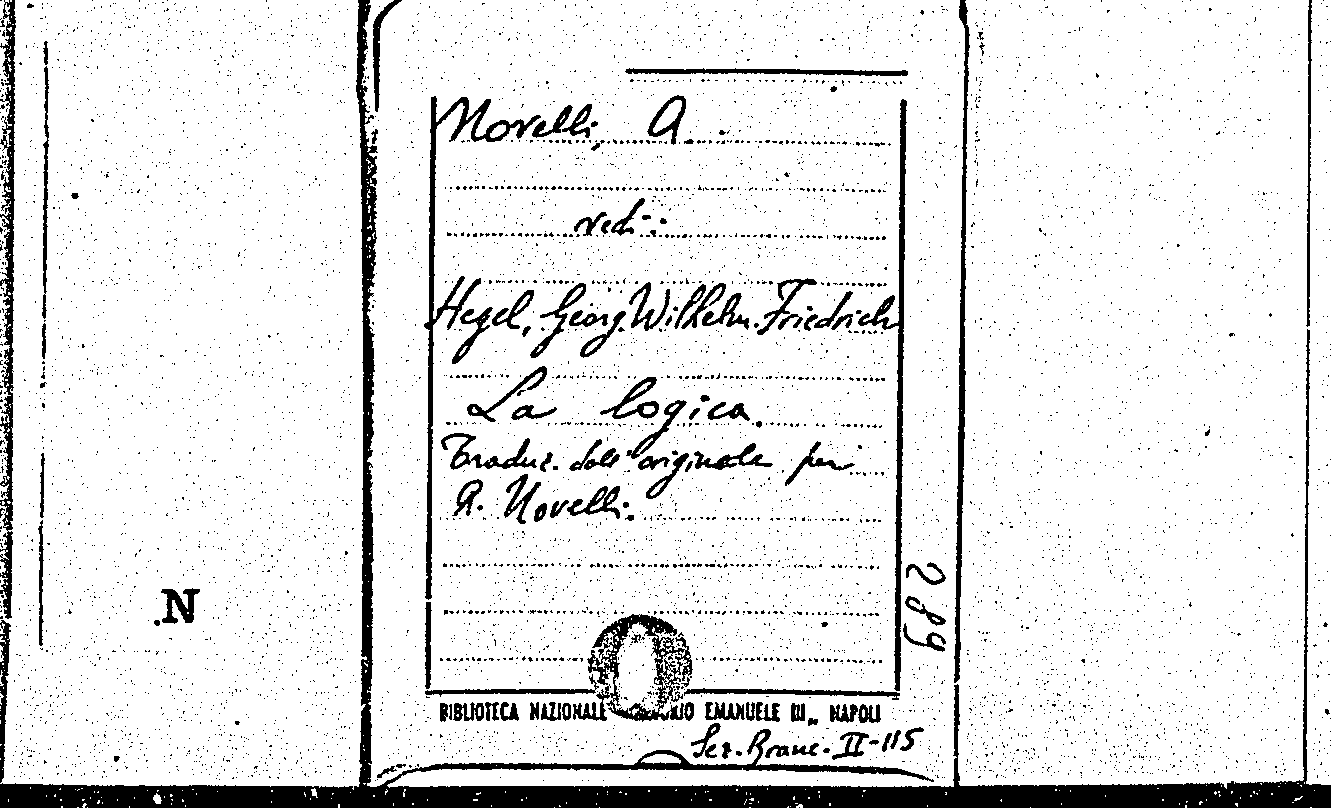 Novelli, A.
vedi:
Hegel, Georg Wilhelm Friedrich
La logica.
Traduz. dall'originale per
A. Novelli.
289
.N
BIBLIOTECA NAZIONALE EMANUELE III„ NAPOLI
Sez. Branc. II-115